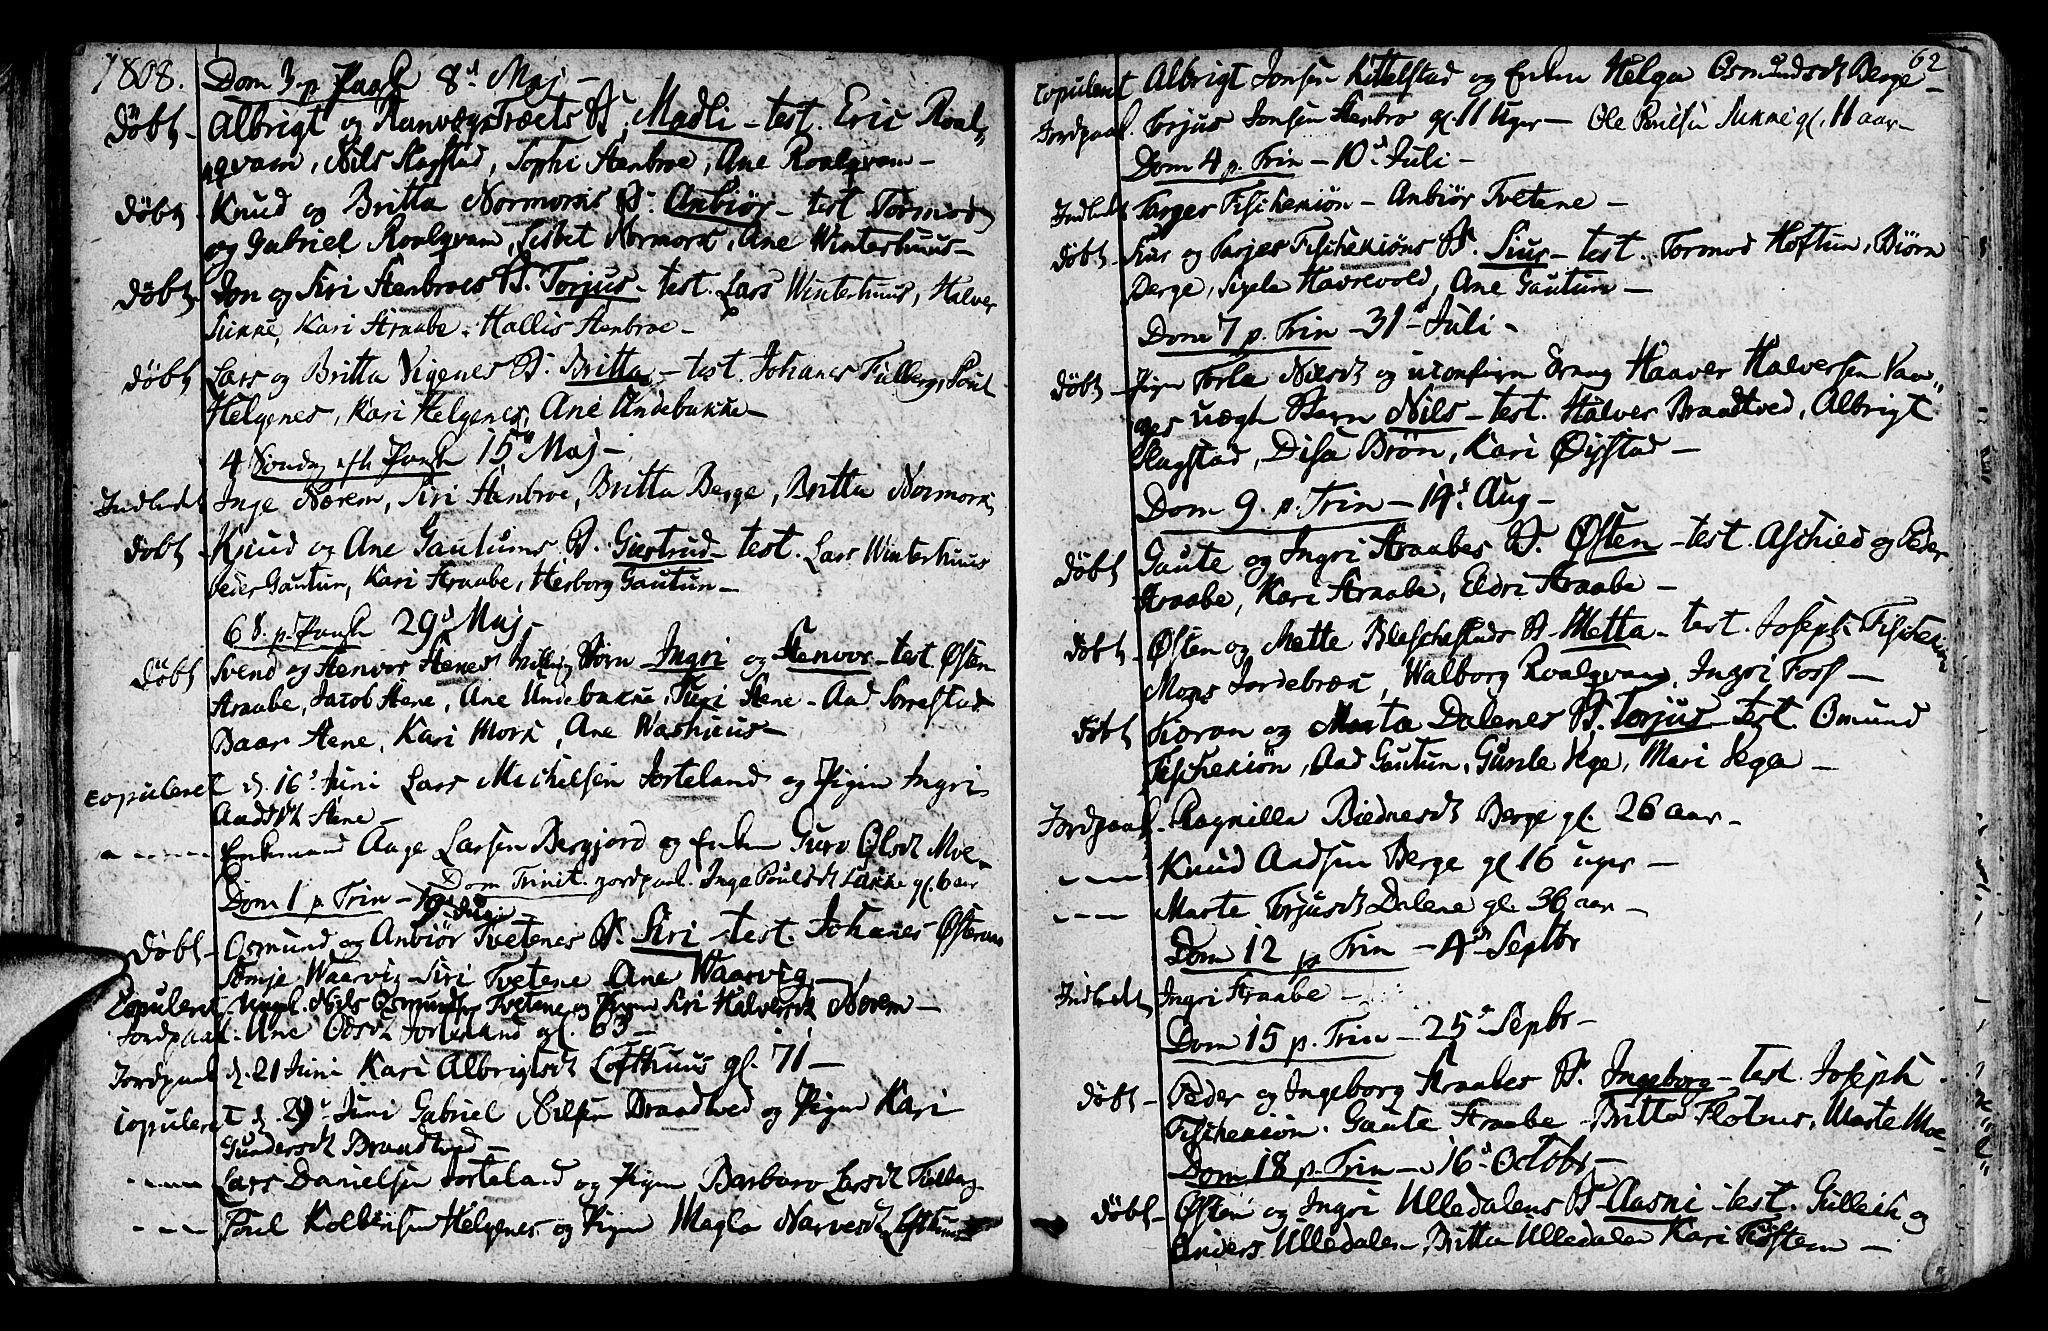 1808. Dom 3 p Paask 8d Maj -
Döbt Albrigt og Ranveg Træets B. Madli - test. Eric Roal,
qvam, Nils Slagstad, Sophi Stenbroe, Ane Roalqvam -
Döbt - Knud og Britta Normorks B. Anbiör - test Tormod
og Gabriel Roalqvam, Lisbet Normork, Ane Winterhuus -
Döbt - Jon og Siri Stenbroes B. Torjus - test. Lars Winterhuus, Halver
Kari Straabe - Hallis Stenbroe -
Döbt Lars og Britta Vigenes B. Britta - test. Johanes Fielberg, Poul
Helgenes, Kari Helgenes, Ane Undebakke -
4 Söndag eft Paask 15d Maj -
Indledet Inge Nærem, Siri Stenbroe, Britta Berge, Britta Normork
Döbt - Knud og Ane Gautums B. Giertrud - test. Lars Winterhuus
Peder Gautun, Kari Straabe, Herborg Gautun -
6 S. p. Paask 29d Maj -
Döbt Svend og Stenvor Stenes Börn - Ingri og Stenvor - test Østen
Straabe, Jacob Stene, Ane Undebakke, Siri Stene - Aad Sorrestad
Baar Stene, Kari Mork, Ane Washuus -
Copuleret d. 16d Juni Lars Michelsen Jorteland og Pigen Ingri
Aadsdt Stene -
- - - - Enkemand Aage Larsen Bergjord og Enken Guro Olsdt Moe -
Dom Trinit. jordpaak. Inge Poulsdt gl. 6 aar
Dom 1 p Trin - 19d Juni
Döbt - Osmund og Anbiör Tvetenes B. Siri - test. Johanes Østeraas
Tömje Waarvig - Siri Tvetene Ane Waarvig -
Copuleret Ungk. Nils Osmundsen Tvetene og Pigen Siri Halversdt Norem -
Jordpaak. Ane Odsdt Jorteland gl. 63 -
Jordpaak d. 21 Juni Kari Albrigtsdt Lofthuus gl. 71 -
Copuleret d. 29d Juni Gabriel Nilsen Braadtved og Pigen Kari
Gundersdt Braadtved -
- - - - Lars Danielsen Jorteland og Pigen Barbara Larsdt
- - - Poul Kolbensen Helgenes og Pigen Magla Narvesdt Lofthuus
62
Copuleret Albrigt Jonsen Kittelstad og Enken Helga Osmundsdt Berge -
Jordpaak. Torjus Jonsen Stenbro gl. 11 Uger - Ole Poulsen gl. 11 aar -
Dom 4 p. Trin - 10d Juli -
Indledet Torger Fischekiön - Anbiör Tvetene -
Döbt - Siur og Torjes Fischekiöns B. Siur - test. Tormod Hoftun, Biörn
Berge, Sigela Havrevold, Ane Gautum -
Dom 7 p. Trin - 31d Juli -
Döbt - Pigen Torla Nilsdt og uconfirm Dreng Haaver Halversen Vaa"
ges uægt Barn Nils - test. Halver Braadtved, Albrigt
Slagstad, Disa Brön, Kari Øistad -
Dom 9. p. Trin - 14d Aug -
Döbt Gaute og Ingri Straabes B. Østen - test. Aschied og Peder
Straabe, Kari Straabe, Eldri Straabe -
Döbt - Østen og Mette Bleschestads B. Metta - test. Joseph Fischekiön
Mons Jordebræk, Walborg Roalqvam, Ingri Foss -
Döbt og Marta Dalenes B. Torjus - test. Osmund
Fischekiön, Aad Gautun, Gunle Vge, Mari Sega -
Jordpaak. Ragnilla Biednesdt Berge gl. 26 aar -
- - - Knud Aadsen Berge gl 16 uger -
- - - Marte Torjusdt Dalene gl. 36 aar -
Dom 12 p Trin - 4d Septbr
Indledet Ingri Straabe -
Dom 15 p. Trin - 25d Septbr -
Döbt - Peder og Ingeborg Straabes B. Ingeborg - test. Joseph
Fischekiön. Gaute Straabe - Britta Flotnes, Marte Moe -
Dom 18 p. Trin - 16d Octobr -
Döbt - Østen og Ingri Ulledalens B. Aasni - test. Gulleik og
Anders Ulledalen, Britta Ulledalen Kari Fiösten -